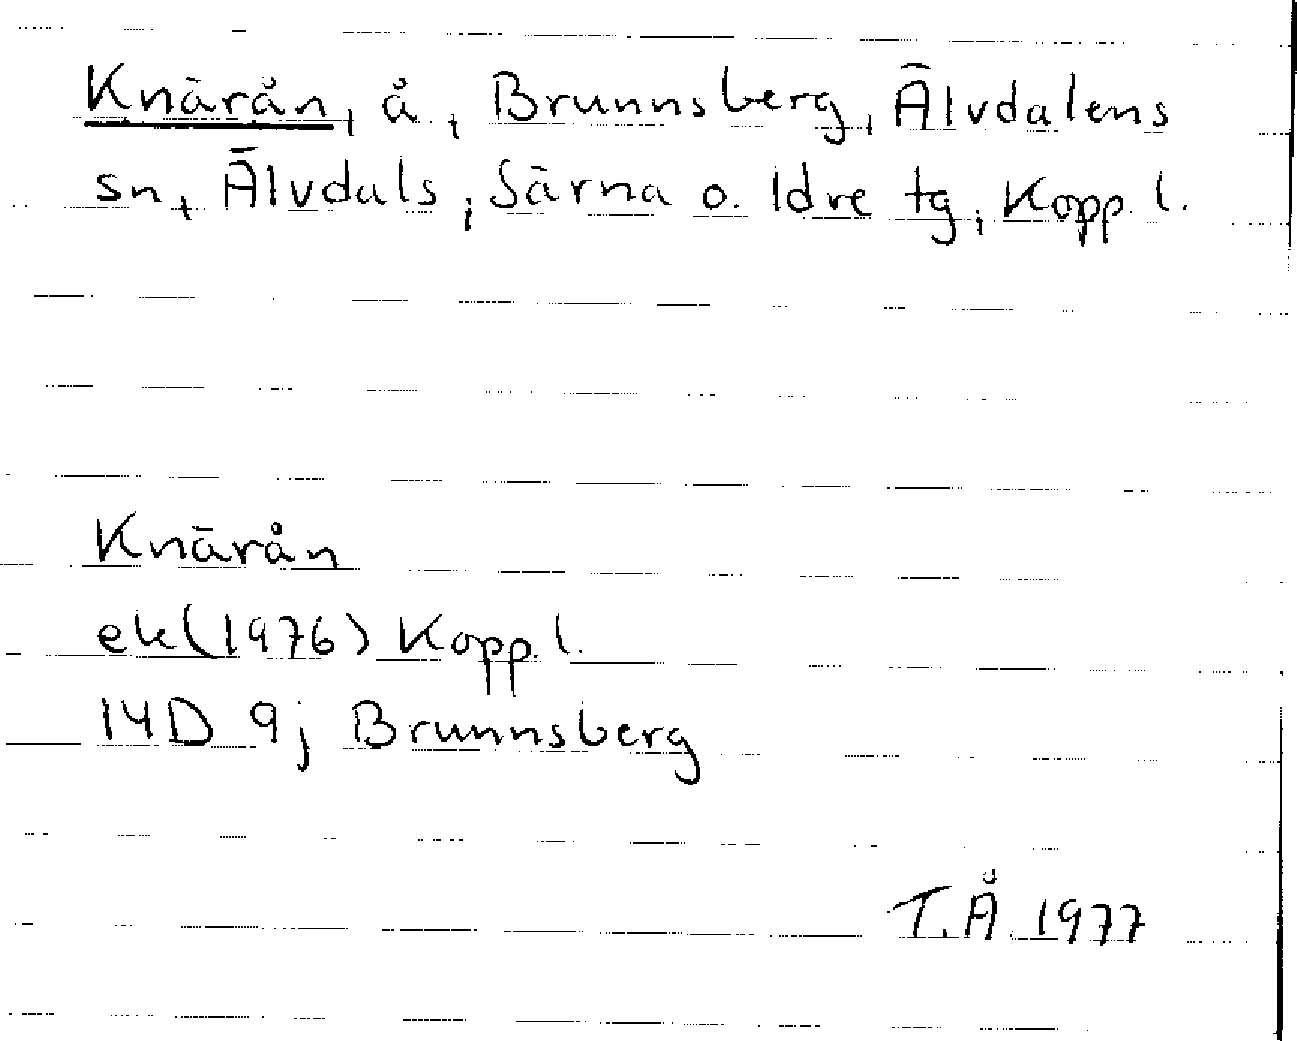 Knärån, å, Brunnsberg, Älvdalens
sn, Älvdals, Särna o. Idre tg, Kopp. l.
Knärån
ek (1976) Kopp. l.
14D 9j Brunnsberg
T.Å. 1977